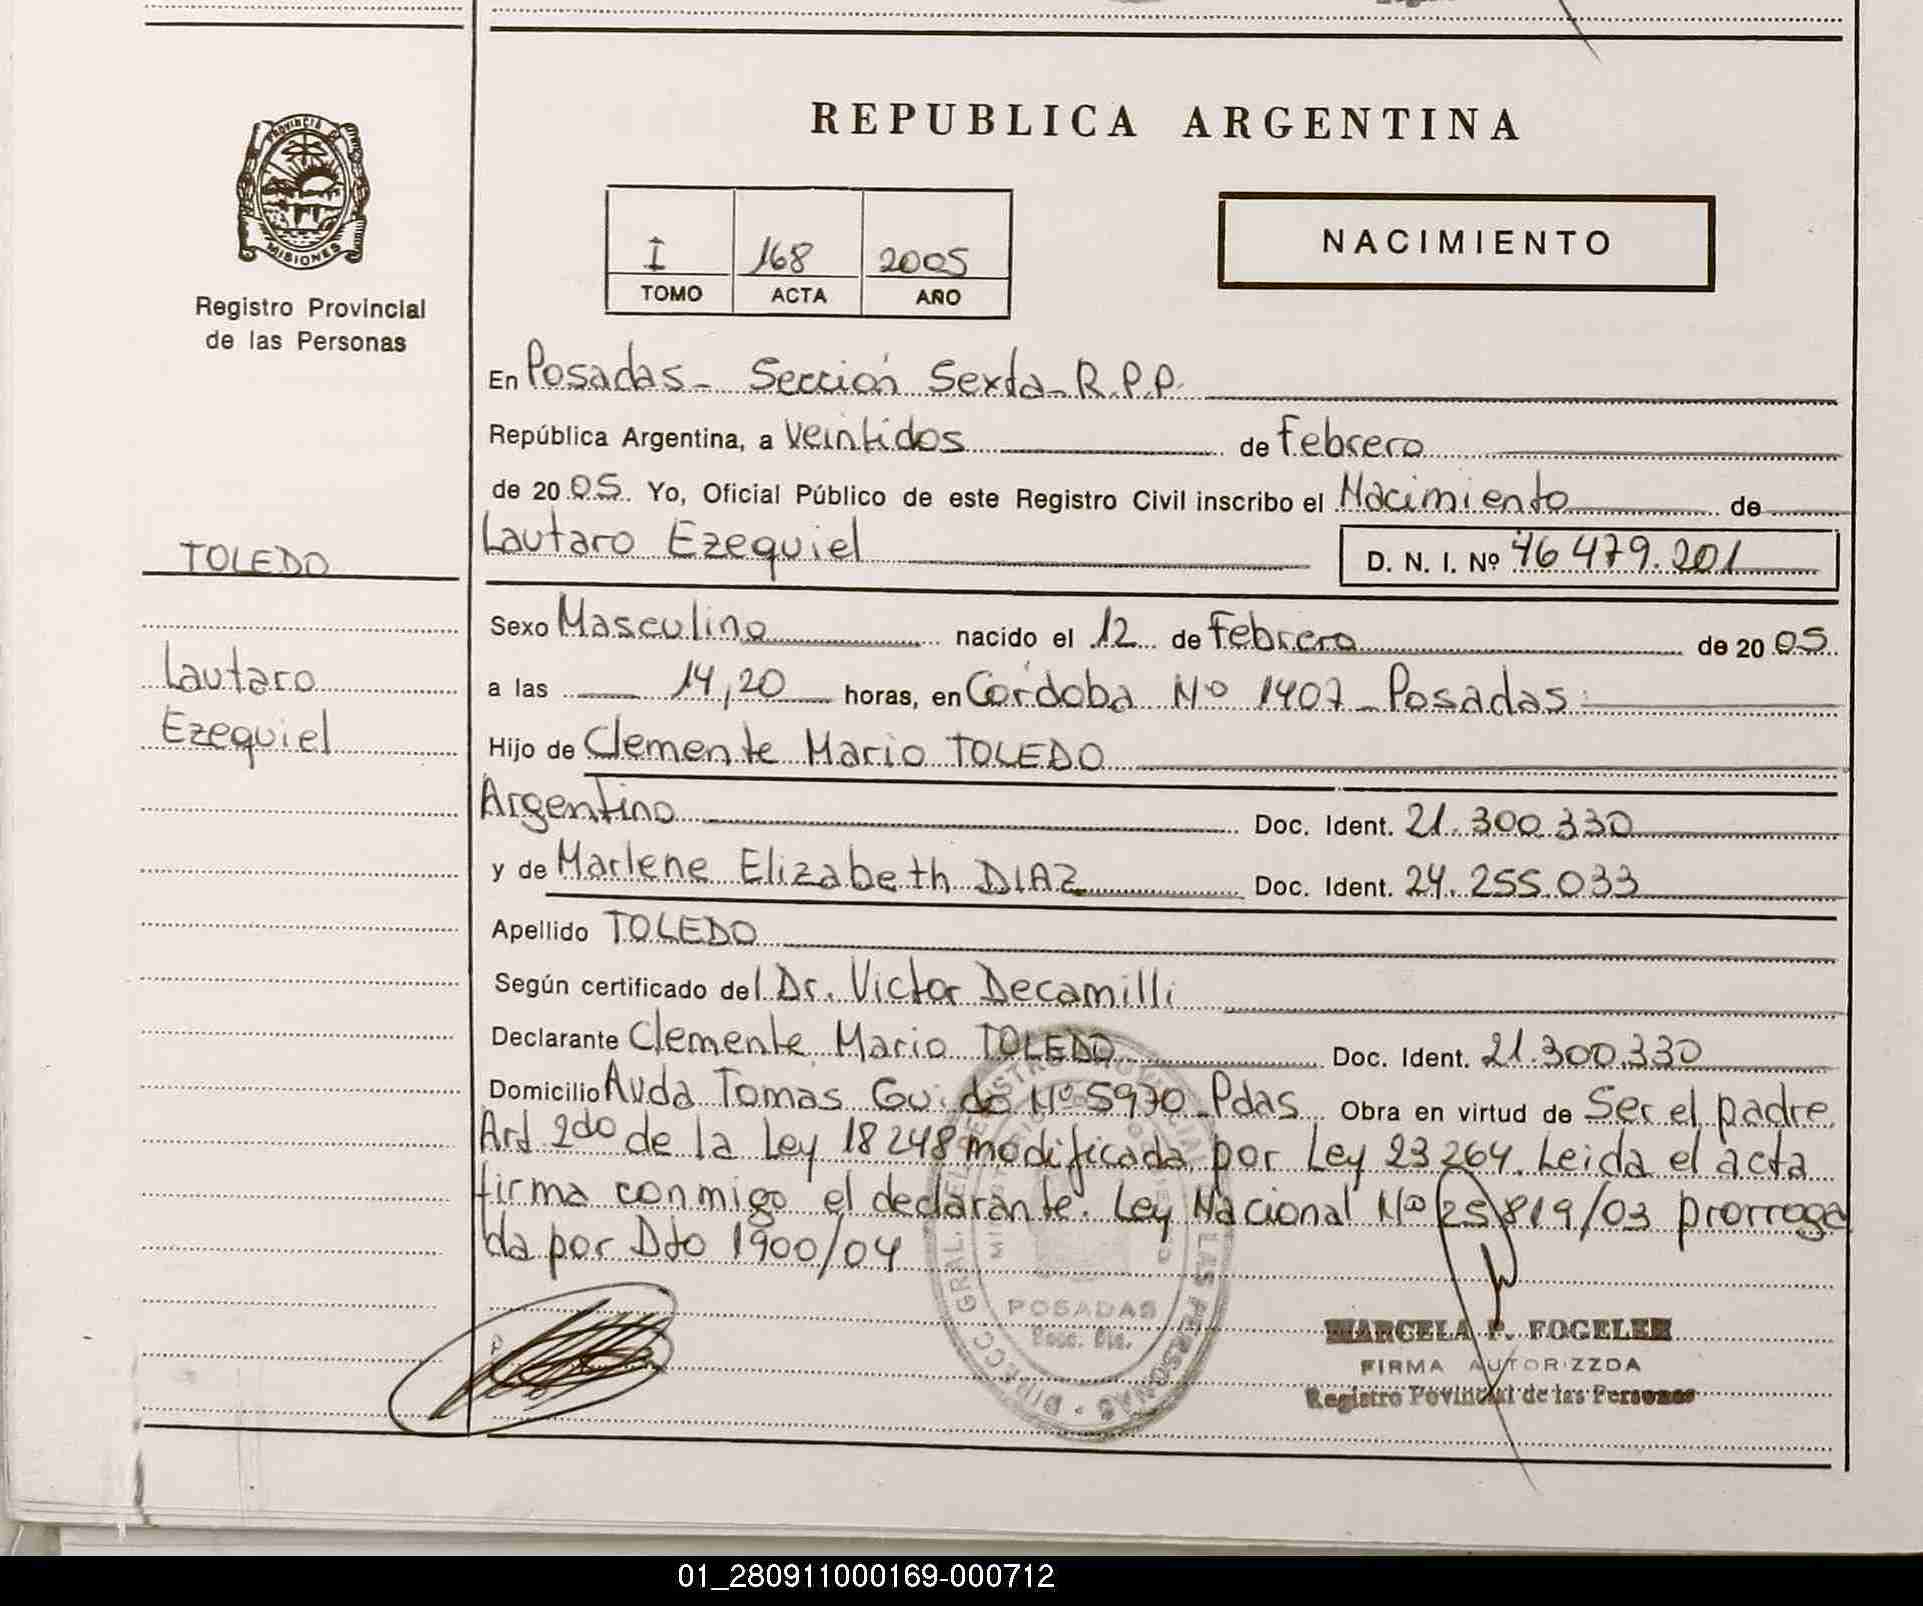 REPUBLICA ARGENTINA
PROVINCIA DE
MISIONES
Registro Provincial
de las Personas
I 168 2005
TOMO ACTA AÑO
NACIMIENTO
En Posadas - Sección Sexta - R.P.P.
República Argentina, a Veintidos de Febrero
de 2005. Yo, Oficial Público de este Registro Civil inscribo el Nacimiento de
TOLEDO
Lautaro Ezequiel D. N. I. Nº 46 479.201
Sexo Masculino nacido el 12 de Febrero de 2005
Lautaro
Ezequiel
a las 14,20 horas, en Córdoba Nº 1407 - Posadas
Hijo de Clemente Mario TOLEDO
Argentino Doc. Ident. 21.300.330
y de Marlene Elizabeth DIAZ Doc. Ident. 24.255.033
Apellido TOLEDO
Según certificado del Dr. Victor Decamilli
Declarante Clemente Mario TOLEDO Doc. Ident. 21.300.330
Domicilio Avda Tomás Guido Nº 5970 - Pdas Obra en virtud de Ser el padre
Art 2do de la Ley 18248 modificada por Ley 23264. Leida el acta
firma conmigo el declarante. Ley Nacional Nº 25819/03 prorroga
da por Dto 1900/04
POSADAS
MARCELA P. FOGELER
FIRMA AUTORIZZDA
Registro Povincial de las Personas
01_280911000169-000712